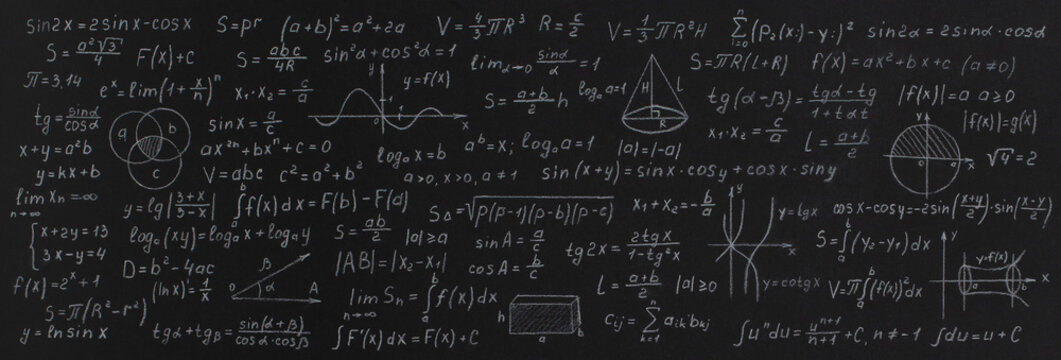 sin2x = 2sinx-cosx
S = a²√3/4
F(x)+C
S=pr
(a+b)² = a²+2a
V = 4/3 πR³
R = c/2
V = 1/3 πR²H
n Σ i=0 (P₂(xᵢ)-yᵢ)²
sin2α = 2sinα·cosα
S = abc/4R
sin²α+cos²α = 1
lim α→0 sinα/α = 1
S=πR(L+R)
f(x) = ax²+bx+c (a≠0)
π=3,14
eˣ = lim(1+x/n)ⁿ
x₁·x₂ = c/a
y
y=f(x)
1
0
x
S = a+b/2 h
logₐa=1
H
L
R
tg(α-β) = tgα-tg/1+tαt
|f(x)| = a a≥0
tg = sinα/cosα
a
b
c
sinx = a/c
x₁·x₂ = c/a
L = a+b/2
y
0
a
x
|f(x)|=g(x)
x+y=a²b
ax²ⁿ+bxⁿ+c=0
logₐx=b
aᵇ=x; logₐa=1
|a|=|-a|
√4=2
y=kx+b
V=abc
c²=a²+b²
a>0, x>0, a≠1
sin(x+y) = sinx·cosy+cosx·siny
lim n→∞ xₙ=∞
y=lg|3+x/3-x|
b ∫ a f(x)dx=F(b)-F(a)
S△=√p(p-1)(p-b)(p-c)
x₁+x₂=-b/a
y
y=lgx
x
y=cotgx
cosx-cosy=-2sin(x+y/2)·sin(x-y/2)
{x+2y=13
3x-y=4
logₐ(xy)=logₐx+logₐy
S = ab/2
|a|≥a
sinA = a/c
tg2x = 2tgx/1-tg²x
S= b ∫ a (y₂-y₁)dx
y
y=f(x)
a
b
x
D=b²-4ac
β
0
α
A
|AB|=|x₂-x₁|
cosA = b/c
f(x)=2ˣ+1
(lnx)'=1/x
lim n→∞ Sₙ = b ∫ a f(x)dx
L = a+b/2
|a|≥0
V=π b ∫ a (f(x))²dx
S=π(R²-r²)
h
a
b
y=ln sinx
tgα+tgβ = sin(α+β)/cosα·cosβ
∫F'(x)dx = F(x)+C
cᵢⱼ = n Σ k=1 aᵢₖbₖⱼ
∫uⁿdu = uⁿ⁺¹/n+1 +C, n≠-1
∫du=u+C